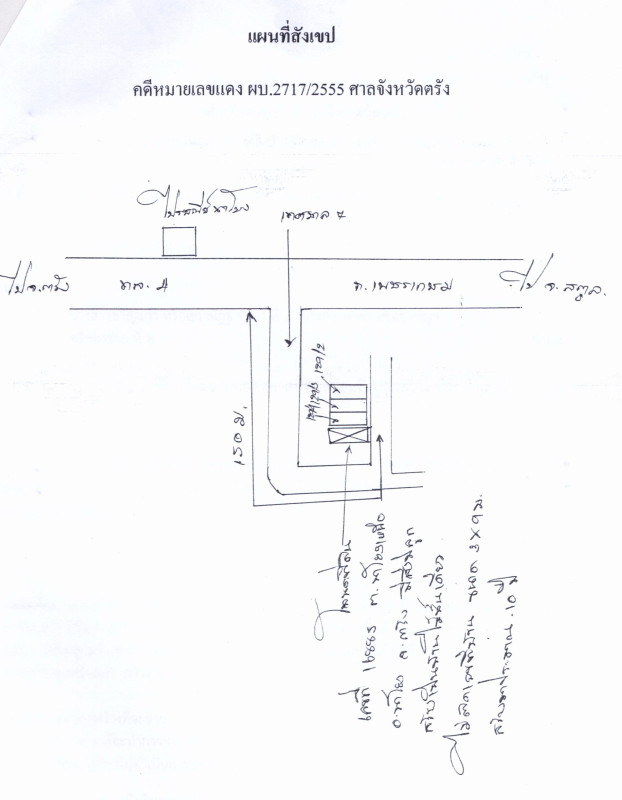 แผนที่สังเขป
คดีหมายเลขแดง ผบ.2717/2555 ศาลจังหวัดตรัง
ไปรษณีย์นาโยง
เทศบาล 4
ไป จ.ตรัง
ทล. 4
ถ.เพชรเกษม
ไป จ.สตูล.
150 ม.
โฉนดที่ดิน
เลขที่ 16883 ต.นาโยงเหนือ
อ.นาโยง จ.ตรัง มีสิ่งปลูก
สร้างเป็นบ้านไม้ชั้นเดียว
ไม่ติดเลขที่บ้าน ขนาด 3 x 9 ม.
สร้างมาประมาณ 10 ปี